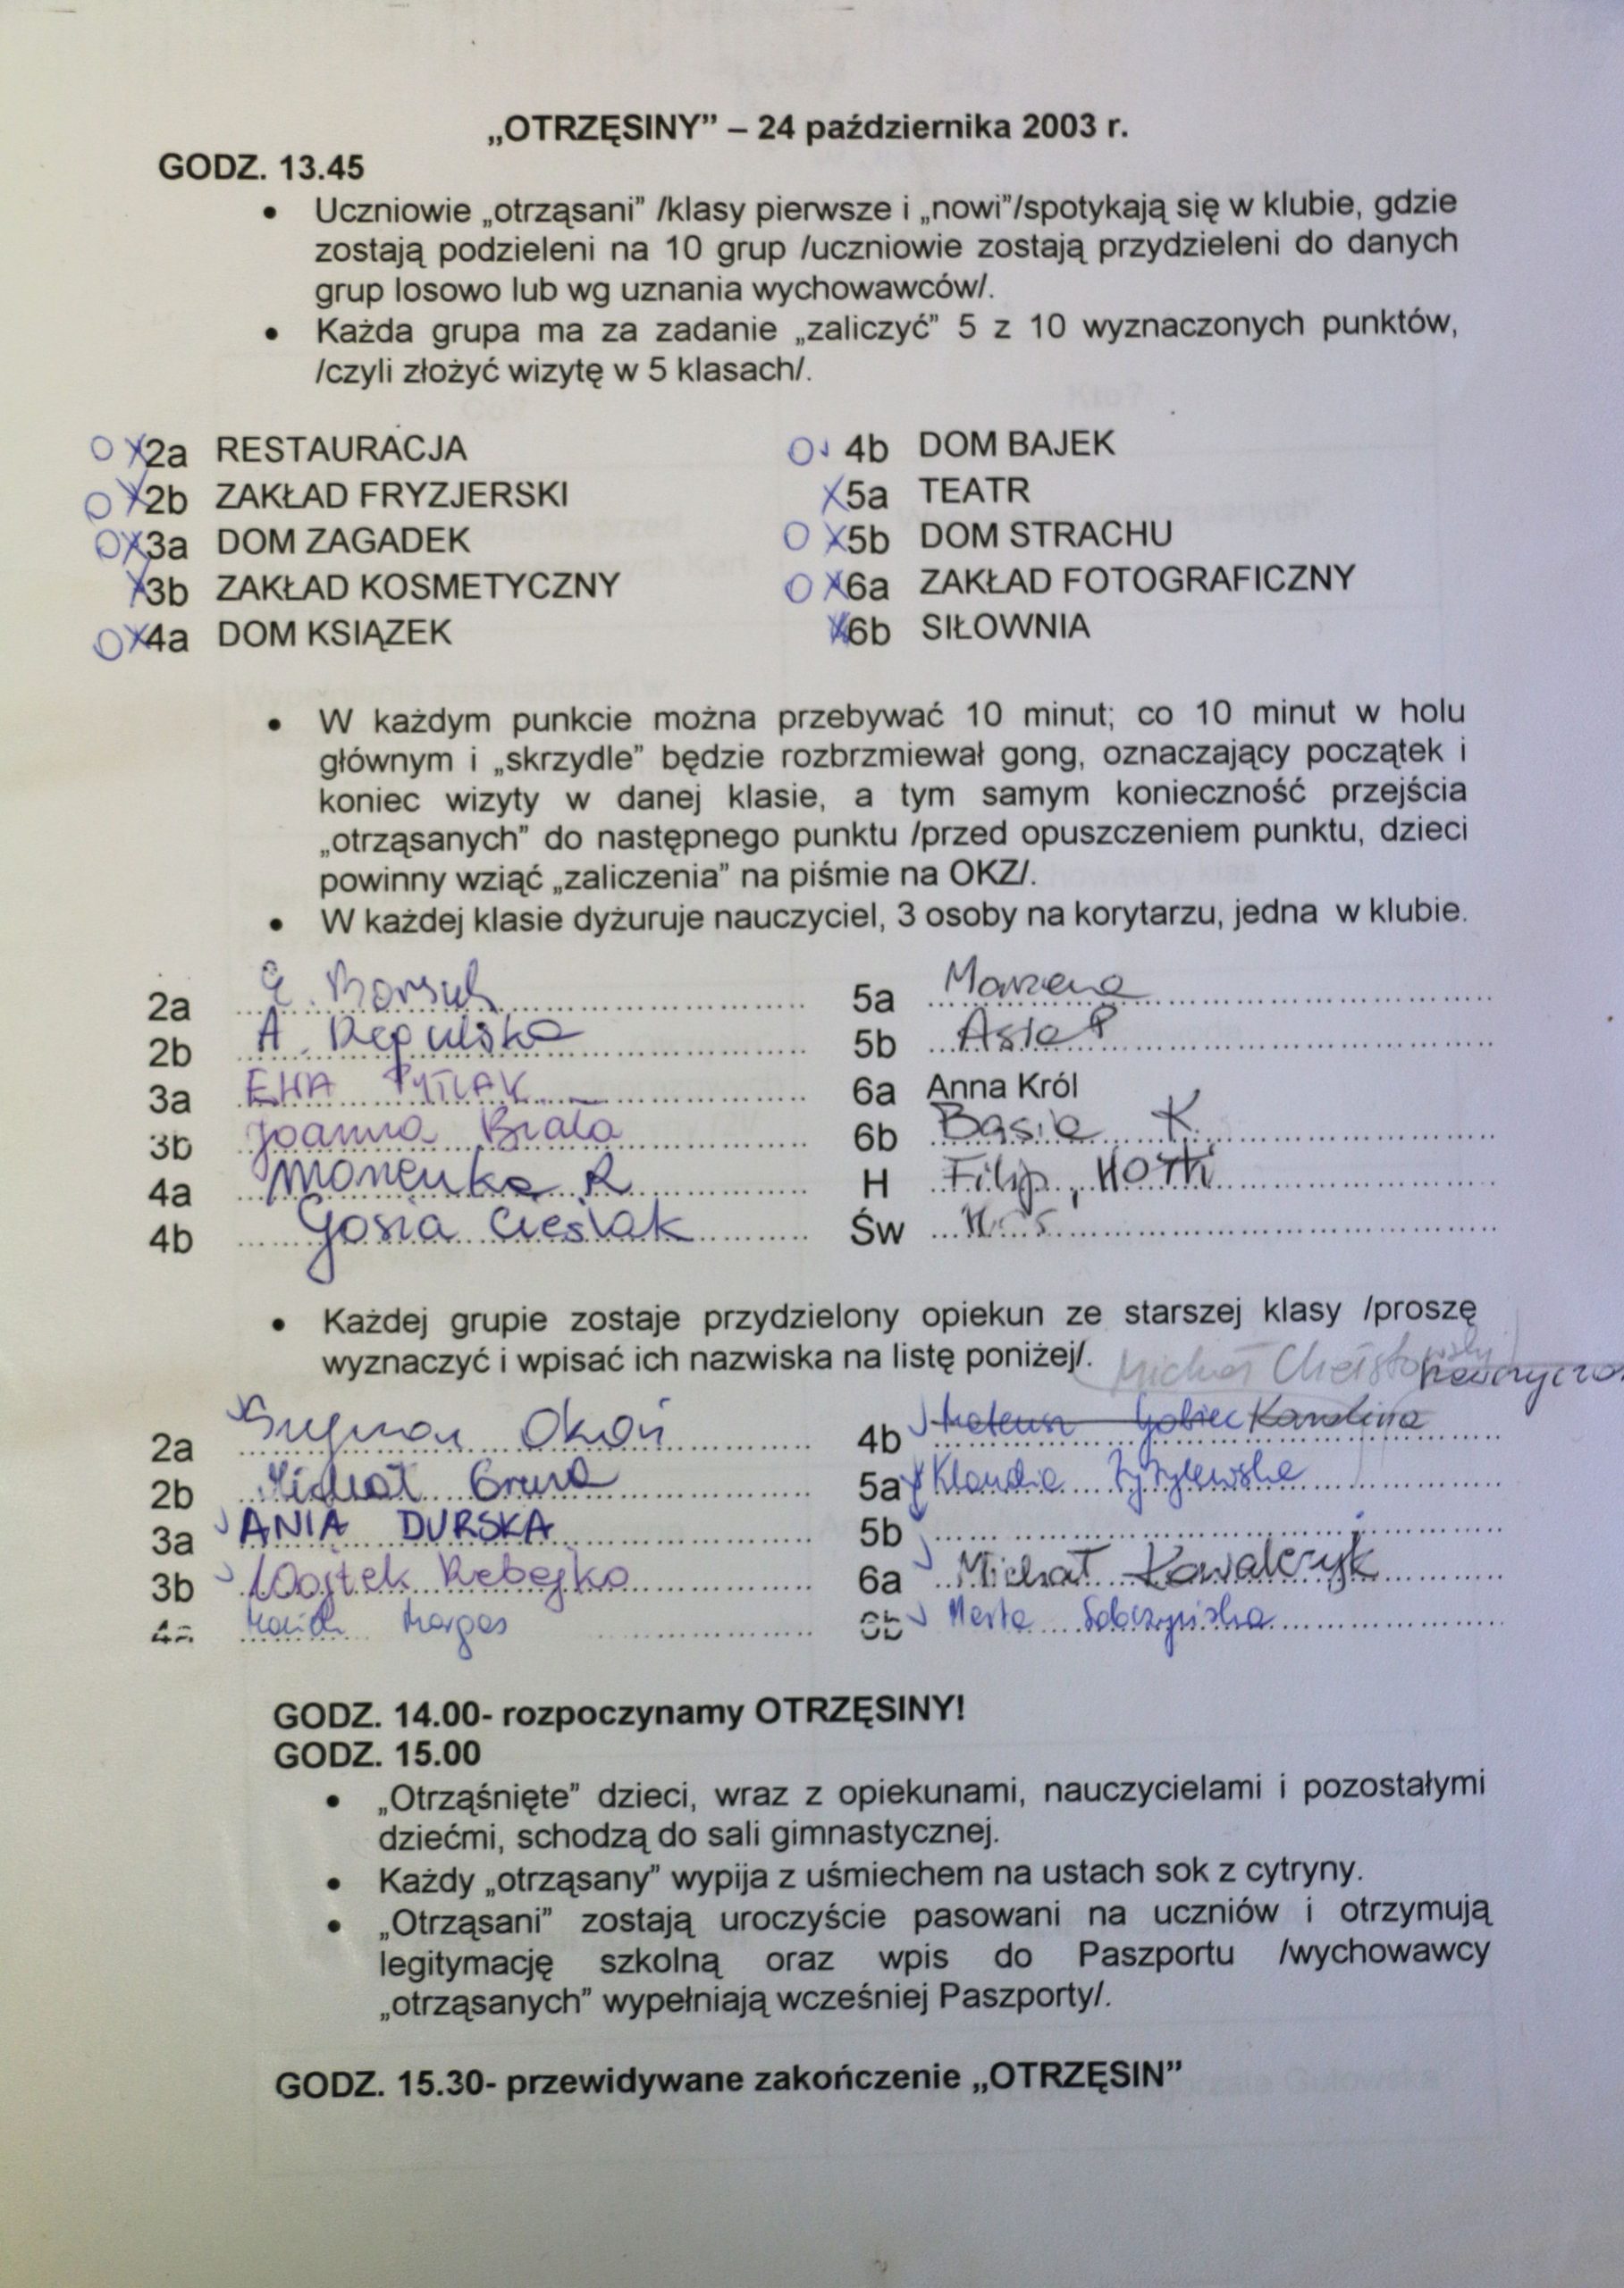 „OTRZĘSINY” – 24 października 2003 r.
GODZ. 13.45
• Uczniowie „otrząsani” /klasy pierwsze i „nowi”/spotykają się w klubie, gdzie
zostają podzieleni na 10 grup /uczniowie zostają przydzieleni do danych
grup losowo lub wg uznania wychowawców/.
• Każda grupa ma za zadanie „zaliczyć” 5 z 10 wyznaczonych punktów,
/czyli złożyć wizytę w 5 klasach/.
O X 2a RESTAURACJA
O X 2b ZAKŁAD FRYZJERSKI
O X 3a DOM ZAGADEK
X 3b ZAKŁAD KOSMETYCZNY
O X 4a DOM KSIĄZEK
O 4b DOM BAJEK
X 5a TEATR
O X 5b DOM STRACHU
O X 6a ZAKŁAD FOTOGRAFICZNY
X 6b SIŁOWNIA
• W każdym punkcie można przebywać 10 minut; co 10 minut w holu
głównym i „skrzydle” będzie rozbrzmiewał gong, oznaczający początek i
koniec wizyty w danej klasie, a tym samym konieczność przejścia
„otrząsanych” do następnego punktu /przed opuszczeniem punktu, dzieci
powinny wziąć „zaliczenia” na piśmie na OKZ/.
• W każdej klasie dyżuruje nauczyciel, 3 osoby na korytarzu, jedna w klubie.
2a Borsuk
2b A. Repulska
3a EWA PYTLAK
3b Joanna Biała
4a Moneuka R
4b Gosia Cieślak
5a Marzena
5b Asia P
6a Anna Król
6b Basia K.
H Filip,
Św
• Każdej grupie zostaje przydzielony opiekun ze starszej klasy /proszę
wyznaczyć i wpisać ich nazwiska na listę poniżej/.
Michał
2a Szymon Okoń
2b Michał
3a ANIA DURSKA
3b Wojtek Rebejko
4a Margas
4b Mateusz Karolina
5a Klaudia
5b
6a Michał Kowalczyk
6b Marta Sobczyńska
GODZ. 14.00- rozpoczynamy OTRZĘSINY!
GODZ. 15.00
• „Otrząśnięte” dzieci, wraz z opiekunami, nauczycielami i pozostałymi
dziećmi, schodzą do sali gimnastycznej.
• Każdy „otrząsany” wypija z uśmiechem na ustach sok z cytryny.
• „Otrząsani” zostają uroczyście pasowani na uczniów i otrzymują
legitymację szkolną oraz wpis do Paszportu /wychowawcy
„otrząsanych” wypełniają wcześniej Paszporty/.
GODZ. 15.30- przewidywane zakończenie „OTRZĘSIN”